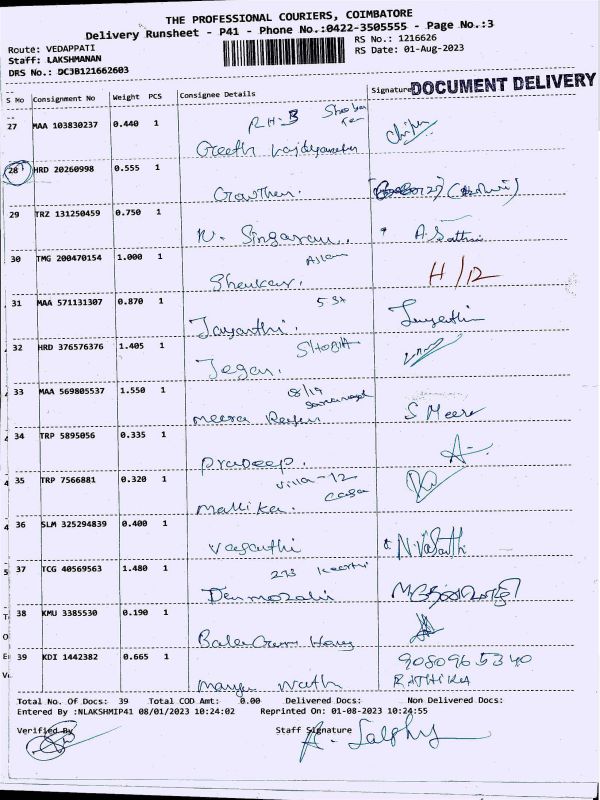 THE PROFESSIONAL COURIERS, COIMBATORE
Delivery Runsheet - P41 - Phone No.:0422-3505555 - Page No.:3
Route: VEDAPPATI
RS No.: 1216626
Staff: LAKSHMANAN
RS Date: 01-Aug-2023
DRS No.: DCJB121662603
DOCUMENT DELIVERY
S No Consignment No Weight PCS Consignee Details Signature
27 MAA 103830237 0.440 1
Geeth
28 HRD 20260998 0.555 1
Gowthem.
29 TRZ 131250459 0.750 1
N. Singaram. A.Sathi
30 TMG 200470154 1.000 1
Shenkar. H/12
31 MAA 571131307 0.870 1
Jayanthi.
32 HRD 376576376 1.405 1
Jegan.
33 MAA 569805537 1.550 1
8/19
meera S Meera
34 TRP 5895056 0.335 1
Pradeep.
35 TRP 7566881 0.320 1
Villa-12
Casa
Mallika.
36 SLM 325294839 0.400 1
Vasanthi N.Vasanthi
37 TCG 40569563 1.480 1
273 Keerthi
Denmozahi
38 KMU 3385530 0.190 1
39 KDI 1442382 0.665 1
9080965340
RATHIKA
Total No. Of Docs: 39 Total COD Amt: 0.00 Delivered Docs: Non Delivered Docs:
Entered By :NLAKSHMIP41 08/01/2023 10:24:02 Reprinted On: 01-08-2023 10:24:55
Verified By Staff Signature